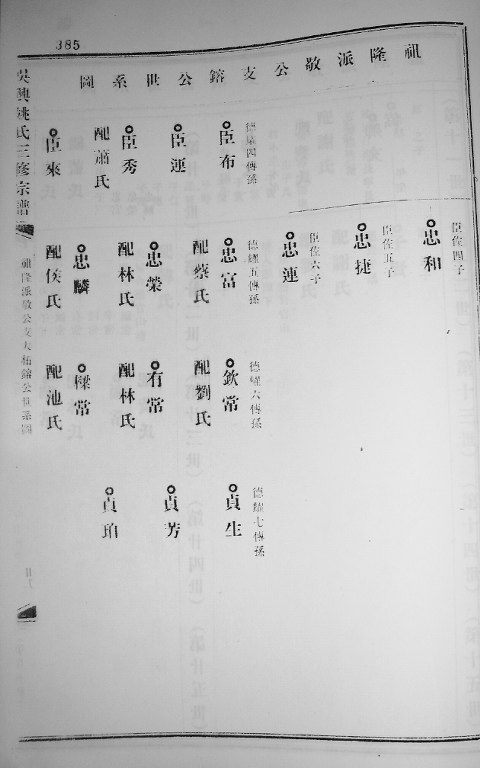 385
祖隆派敬公支鎔公世系圖
臣佐四子
忠和
臣佐五子
忠捷
臣佐六子
忠連
德耀四傳孫
臣布
臣運
臣秀
配蕭氏
臣來
德耀五傳孫
忠富
配蔡氏
忠榮
配林氏
忠麟
配侯氏
德耀六傳孫
欽常
配劉氏
有常
配林氏
樑常
配池氏
德耀七傳孫
貞生
貞芳
貞珀
吳興姚氏三修宗譜
祖隆派敬公支大祐鎔公世系圖